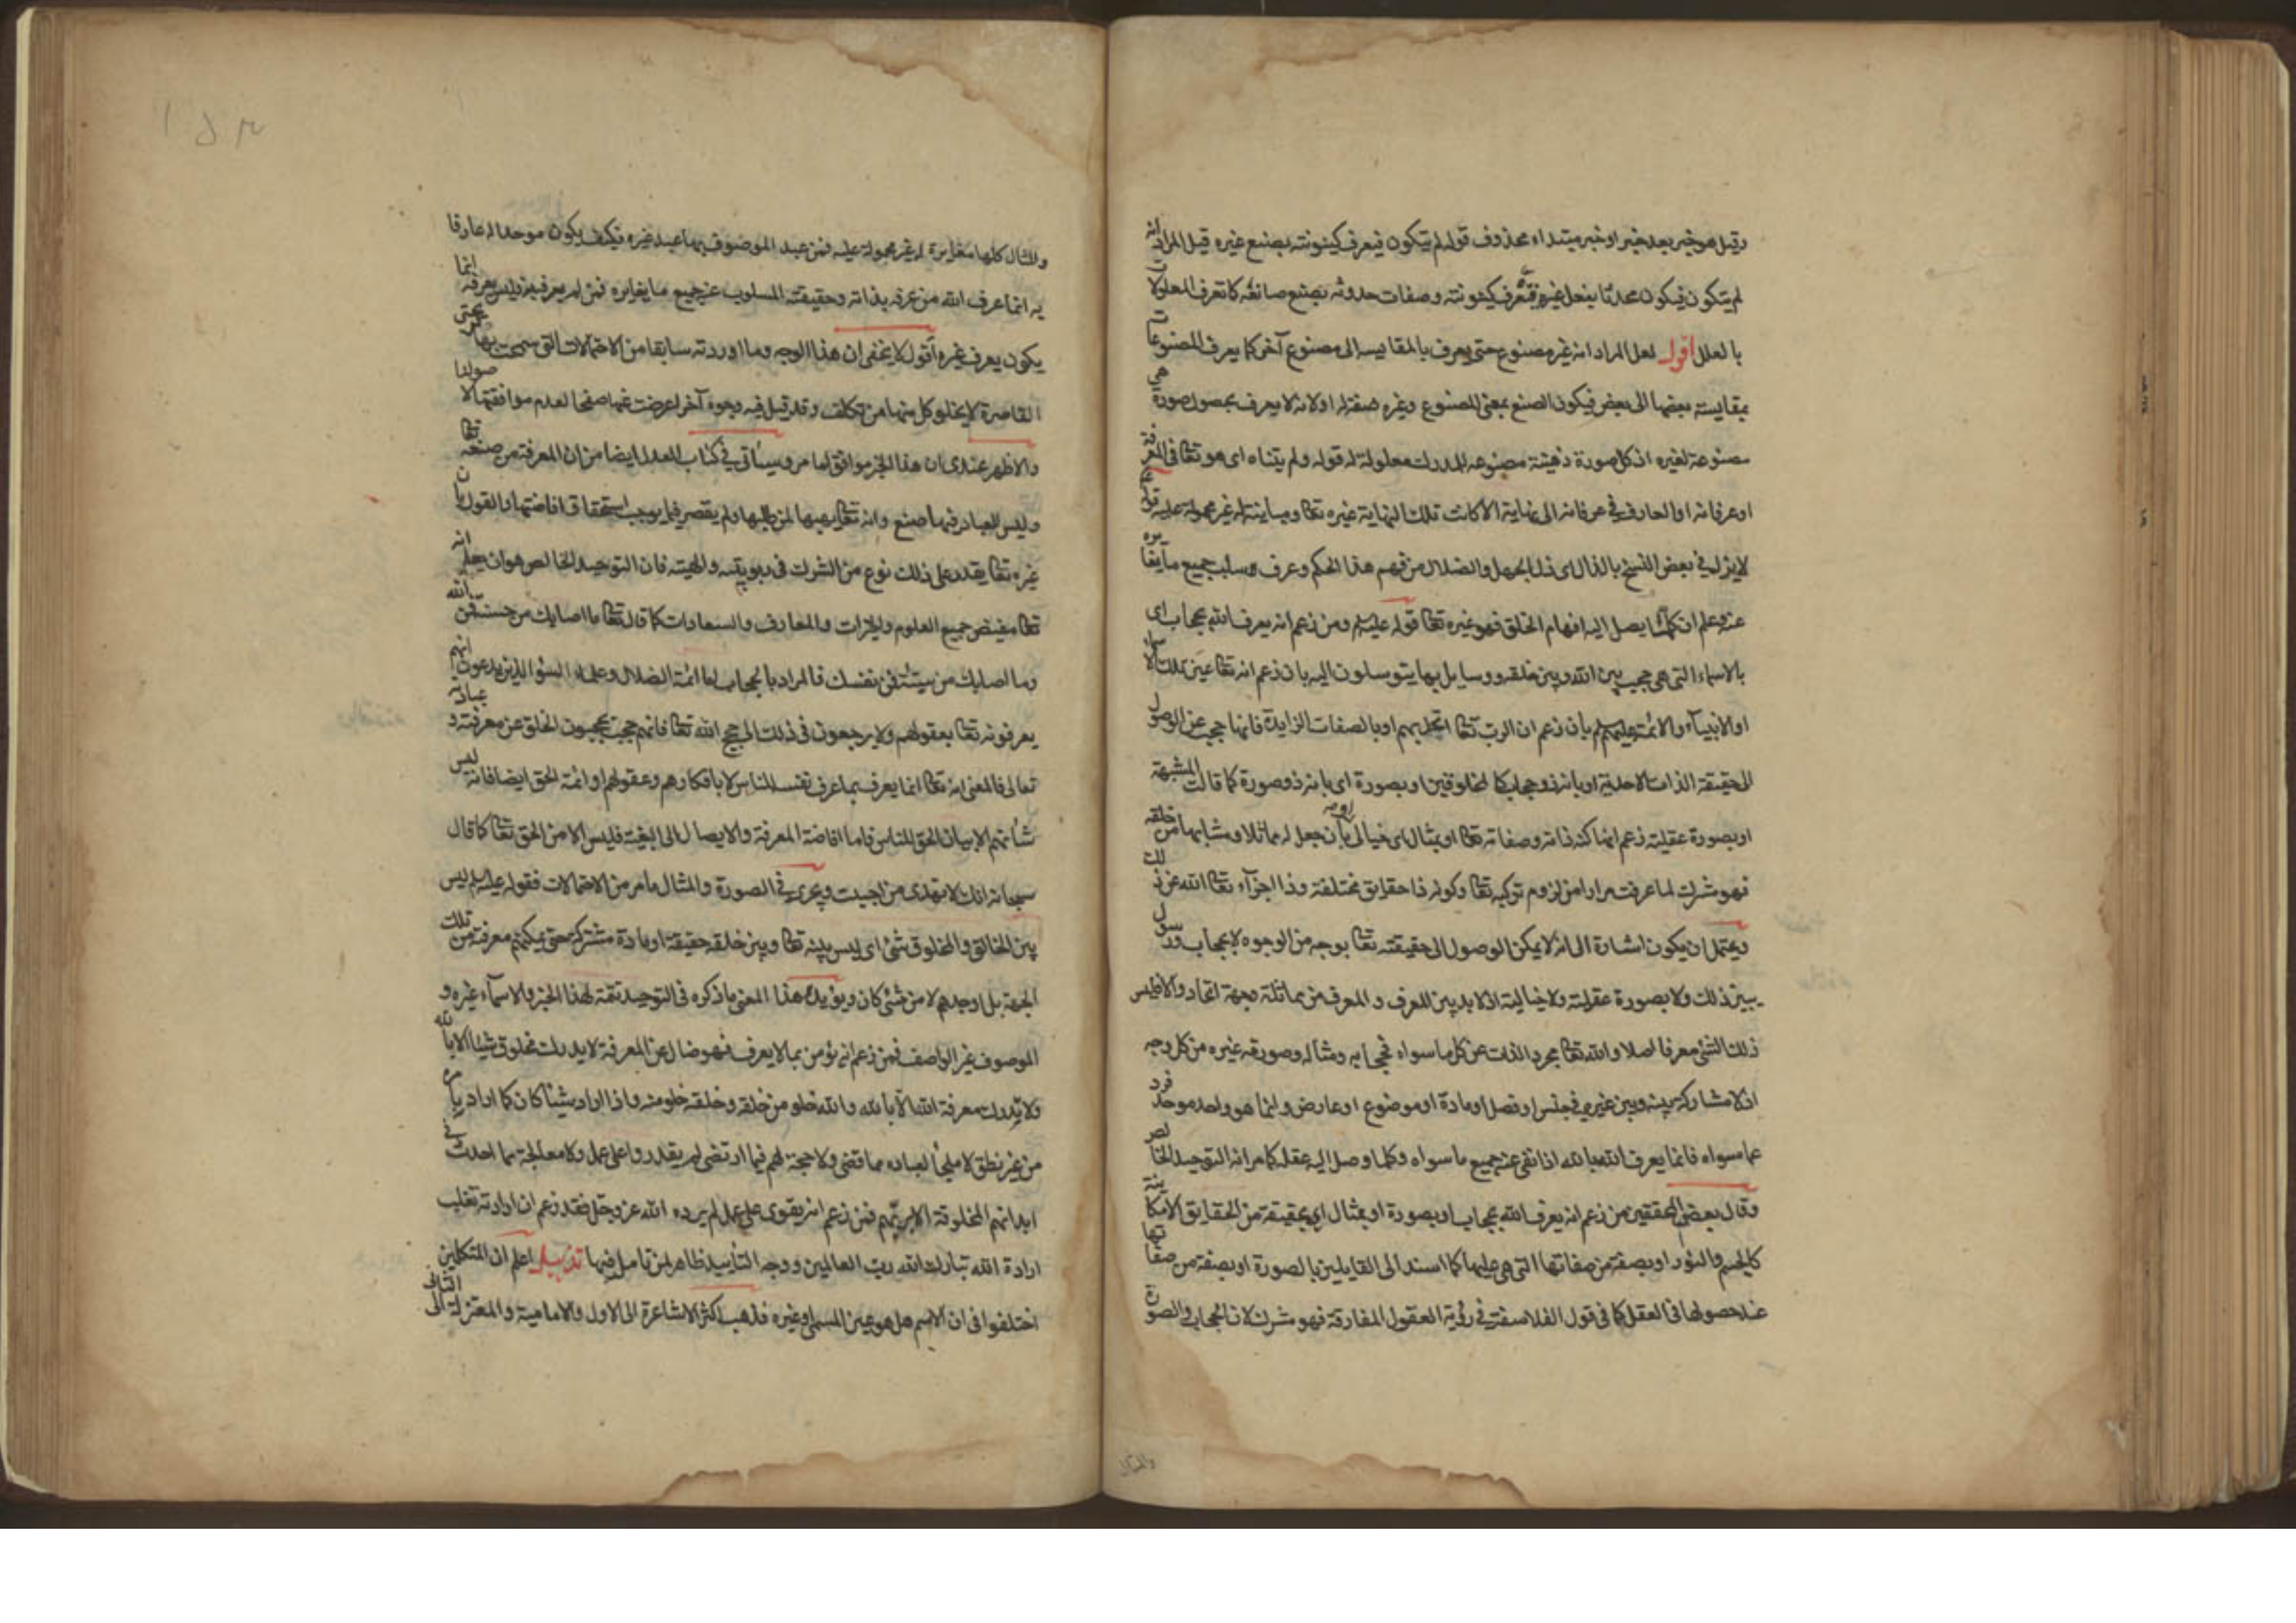 وقيل هو خبر بعد خبر او خبر مبتداء محذوف قوله لم يتكون فيعرف كينونته بصنع غيره قيل المراد انه
لم يتكون فيكون محدثا بفعل غيره فتعرف كينونته وصفات حدوثه بصنع صانعه كا تعرف المعلولات
بالعلل اقول لعل المراد انه غير مصنوع حتى يعرف بالمقايسه الى مصنوع آخر كما يعرف المصنوعات
بمقايسة بعضها الى بعض فيكون الصنع بمعنى المصنوع وغيره صفة له او لانه لا يعرف بحصول صورة هي
مصنوعة لغيره اذ كل صورة ذهنية مصنوعه للمدرك معلولة له قوله ولم يتناه اى هو تعا فى المعرفة
او عرفانه او العارف في عرفانه الى نهاية الا كانت تلك النهاية غيره تعا ومباينة له غير محمولة عليه قوله
لا يزل في بعض النسخ بالذال اى ذل الجهل والضلال من فهم هذا الحكم وعرف وسلب جميع ما يغايره
عنه وعلم ان كلما يصل اليه افهام الخلق فهو غيره تعا قوله عليه السلم ومن زعم انه يعرف الله بحجاب اى
بالاسماء التى هى حجب بين الله وبين خلقه ووسايل بها يتوسلون اليه بان زعم انه تعا عين تلك الاسماء
او الانبياء والائمة عليهم السلم بان زعم ان الرب تعا اتحد بهم او بالصفات الزايدة فانها حجب عن الوصول
الى حقيقة الذات الاحدية او بانه ذو حجاب كالمخلوقين او بصورة اى بانه ذو صورة كما قالت المشبهة
او بصورة عقلية زعم انها كنه ذاته وصفاته تعا او بمثال اى خيالى او بان جعل له مماثلا ومشابها من خلقه
فهو مشرك لما عرفت مرارا من لزوم تركبه تعا وكونه ذا حقايق مختلفة وذا اجزآء تعا الله عن ذلك
ويحتمل ان يكون اشارة الى انه لا يمكن الوصول الى حقيقته تعا بوجه من الوجوه لا بحجاب ورسول
يبين ذلك ولا بصورة عقلية ولا خيالية اذ لا بد بين المعرف والمعرف من مماثلة وجهة اتحاد والا فليس
ذلك الشئ معرفا اصلا والله تعا مجرد الذات عن كل ما سواه فحجابه ومثاله وصورته غيره من كل وجه
اذ لا مشاركة بينه وبين غيره في جنس او فصل او مادة او موضوع او عارض وانما هو واحد موحد فرد
عما سواه فانما يعرف الله بالله اذا نفى عنه جميع ما سواه وكلما وصل اليه عقله كما مر انه التوحيد الخالص
وقال بعض المحققين من زعم انه يعرف الله بحجاب او بصورة او بمثال اى بحقيقة من الحقايق الامكانية
كالجسم والنور او بصفة من صفاتها التى هى عليها كما اسند الى القايلين بالصورة او بصفة من صفاتها
عند حصولها فى العقل كما فى قول الفلاسفة في رؤية العقول المفارقة فهو مشرك لان الحجاب والصورة
والمثال
والمثال كلها مغايرة له غير محمولة عليه فمن عبد الموصوف بها عبد غيره فكيف يكون موحدا له عارفا
به انما عرف الله من عرفه بذاته وحقيقته المسلوب عنه جميع ما يغايره فمن لم يعرفه به فليس يعرفه انما
يكون يعرف غيره أقول لا يخفى ان هذا الوجه وما اوردته سابقا من الاحتمالات التى سمحت بها
القاصرة لا يخلو كل منها من تكلف وقد قيل فيه وجوه آخر اعرضت عنها صفحا لعدم موافقتها لاصولنا
والاظهر عندى ان هذا الخبر موافق لما مر وسيأتى في كتاب العدل ايضا من ان المعرفة من صنعه تعا
وليس للعباد فيها صنع وانه تعا يهبها لمن طلبها ولم يقصر فيما يوجب استحقاق افاضتها والقول بان
غيره تعا يقدر على ذلك نوع من الشرك فى ربوبيته والهيته فان التوحيد الخالص هو ان يعلم انه
تعا مفيض جميع العلوم والخيرات والمعارف والسعادات كما قال تعا ما اصابك من حسنة فمن الله
وما اصابك من سيئة فمن نفسك فالمراد بالحجاب اما ائمة الضلال وعلماء السوء الذين يدعون انهم
يعرفونه تعا بعقولهم ولا يرجعون فى ذلك الى حجج الله تعا فانهم حجب يحجبون الخلق عن معرفته وعبادته
تعالى فالمعنى انه تعا انما يعرف بما عرف نفسه للناس لا بافكارهم وعقولهم او ائمة الحق ايضا فانه ليس
شأنهم الا بيان الحق للناس فاما افاضة المعرفة والايصال الى البغية فليس الا من الحق تعا كما قال
سبحانه انك لا تهدى من احببت ويجرى فى الصورة والمثال ما مر من الاحتمالات فقوله عليه السلم ليس
بين الخالق والمخلوق شئ اى ليس بينه تعا وبين خلقه حقيقة او مادة مشتركة حتى يمكنهم معرفته من تلك
الجهة بل اوجدهم لا من شئ كان ويؤيد هذا المعنى ما ذكره فى التوحيد تتمة لهذا الخبر والاسماء غيره و
الموصوف غير الواصف فمن زعم انه يؤمن بما لا يعرف فهو ضال عن المعرفة لا يدرك مخلوق شيئا الا بالله
ولا يدرك معرفة الله الا بالله والله خلو من خلقه وخلقه خلو منه واذا اراد شيئا كان كما اراد بامره
من غير نطق لا ملجأ لعباده مما قضى ولا حجة لهم فيما ارتضى لم يقدروا على عمل ولا معالجة مما احدث فى
ابدانهم المخلوقة الا بربهم فمن زعم انه يقوى على عمل لم يرده الله عز وجل فقد زعم ان ارادته تغلب
ارادة الله تبارك الله رب العالمين ووجه التأييد ظاهر لمن تامل فيها تذييل اعلم ان المتكلمين
اختلفوا فى ان الاسم هل هو عين المسمى او غيره فذهب اكثر الاشاعرة الى الاول والامامية والمعتزلة الى الثانى